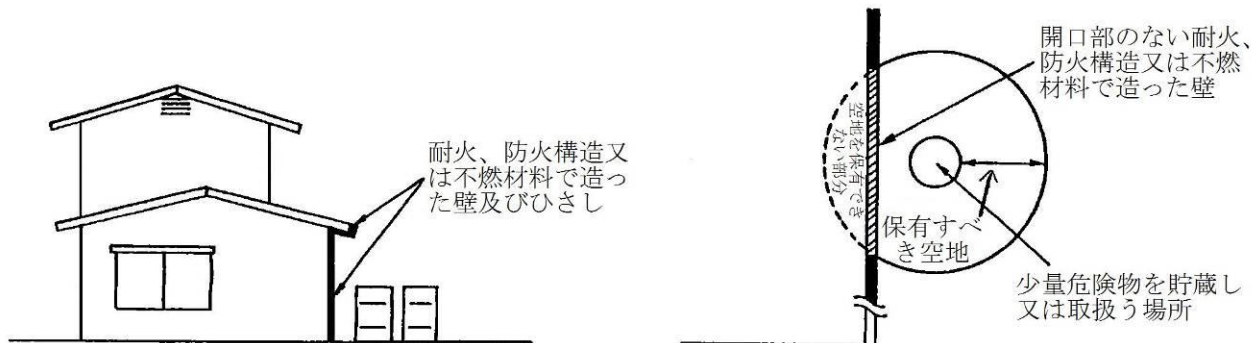 耐火、防火構造又
は不燃材料で造っ
た壁及びひさし
開口部のない耐火、
防火構造又は不燃
材料で造った壁
空地を保有でき
ない部分
保有すべ
き空地
少量危険物を貯蔵し
又は取扱う場所